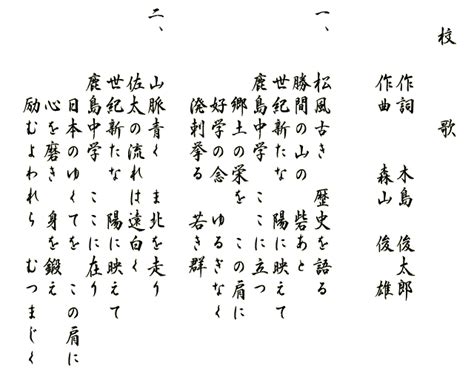 校歌
作詞 木島 俊太郎
作曲 森山 俊雄
一、
松風古き 歴史を語る
勝間の山の 砦あと
世紀新たな 陽に映えて
鹿島中学 ここに立つ
郷土の栄を この肩に
好学の念 ゆるぎなく
溌剌挙る 若き群
二、
山脈青く ま北を走り
佐太の流れは遠白く
世紀新たな 陽に映えて
鹿島中学 ここに在り
日本のゆくてを この肩に
心を磨き 身を鍛え
励むよわれら むつまじく